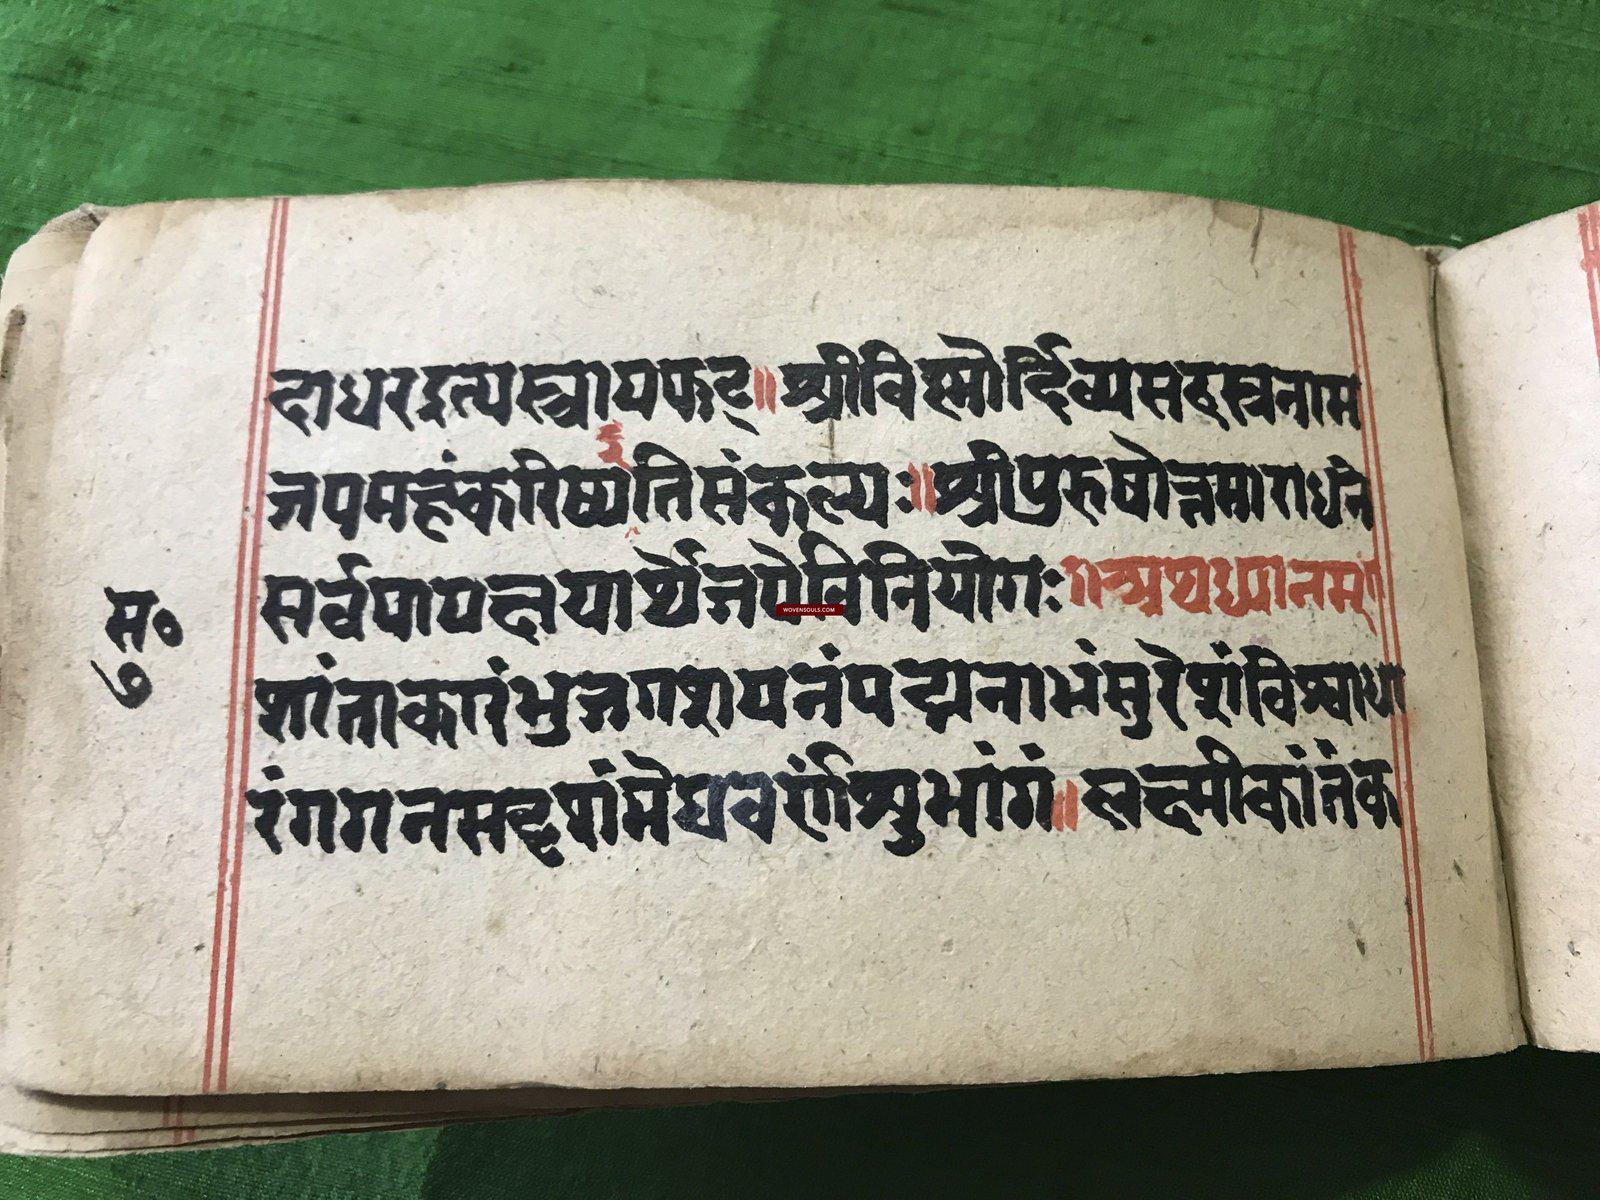 दाधरइत्यस्त्रायफट्॥श्रीविष्णोर्दिव्यसहस्त्रनाम
जपमहंकरिष्यइतिसंकल्पः॥श्रीपुरुषोत्तमाराधने
सर्वपापक्षयार्थेजपेविनियोगः॥अथध्यानम्॥
स॰
७
शांताकारंभुजगशयनंपद्मनाभंसुरेशंविश्वाधा
रंगगनसदृशंमेघवर्णंशुभांगं॥लक्ष्मीकांतंक
WOVENSOULS.COM